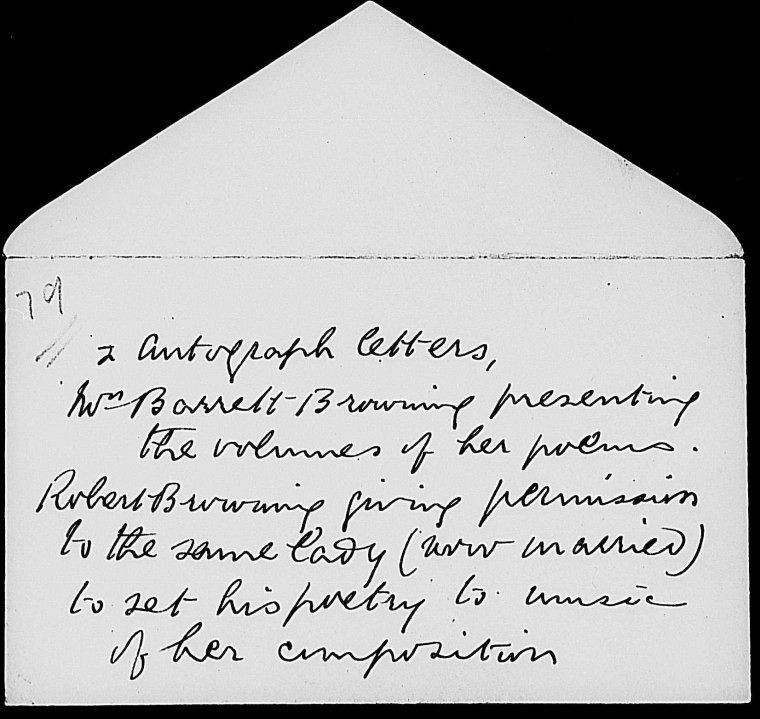 79
2 Autograph letters,
Mrs Barrett-Browning presenting
the volumes of her poems.
Robert Browning giving permission
to the same lady (now married)
to set his poetry to music
of her composition